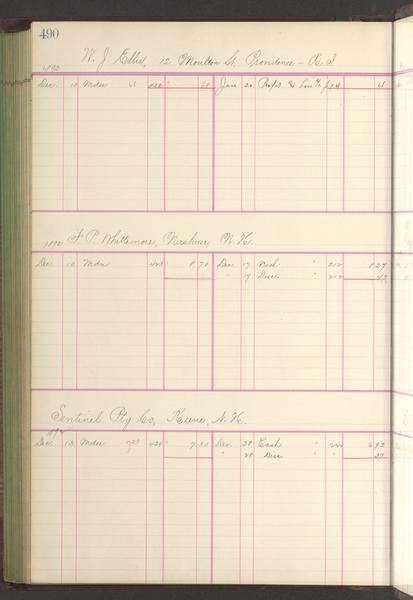 490
W. J. Ellis, 12 Moulton St. Providence - R. I
Dec 10 Mdse 68 " 68 June 30 Profit & Loss 68
1892 F. P. Whittemore, Nashua, N. H.
Dec 10 Mdse 423 8 70 Dec 17 Cash " 212 8 27
" 17 Disc " 212 43
Sentinel Ptg Co, Keene, N. H.
Dec 13 Mdse 7 30 Dec 28 Cash " 6 93
" 28 Disc " " 37